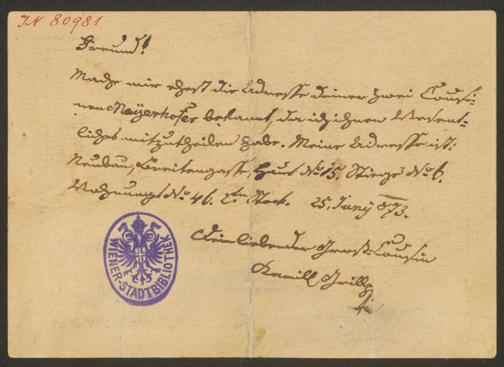 IN 80981
Freund!
Mache mir ehest die Adresse deiner zwei Cousi-
nen Mayerhofer bekannt, da ich ihnen Wesent-
liches mitzutheilen habe. Meine Adresse ist:
Neubau, Breitengasse, Haus No 15. Stiege No 6.
Wohnungs No 46. 2ten Stock. 25. Juny 873.
Dein liebender Gross-Cousin
Kamill Grillp
WIENER-STADTBIBLIOTHEK